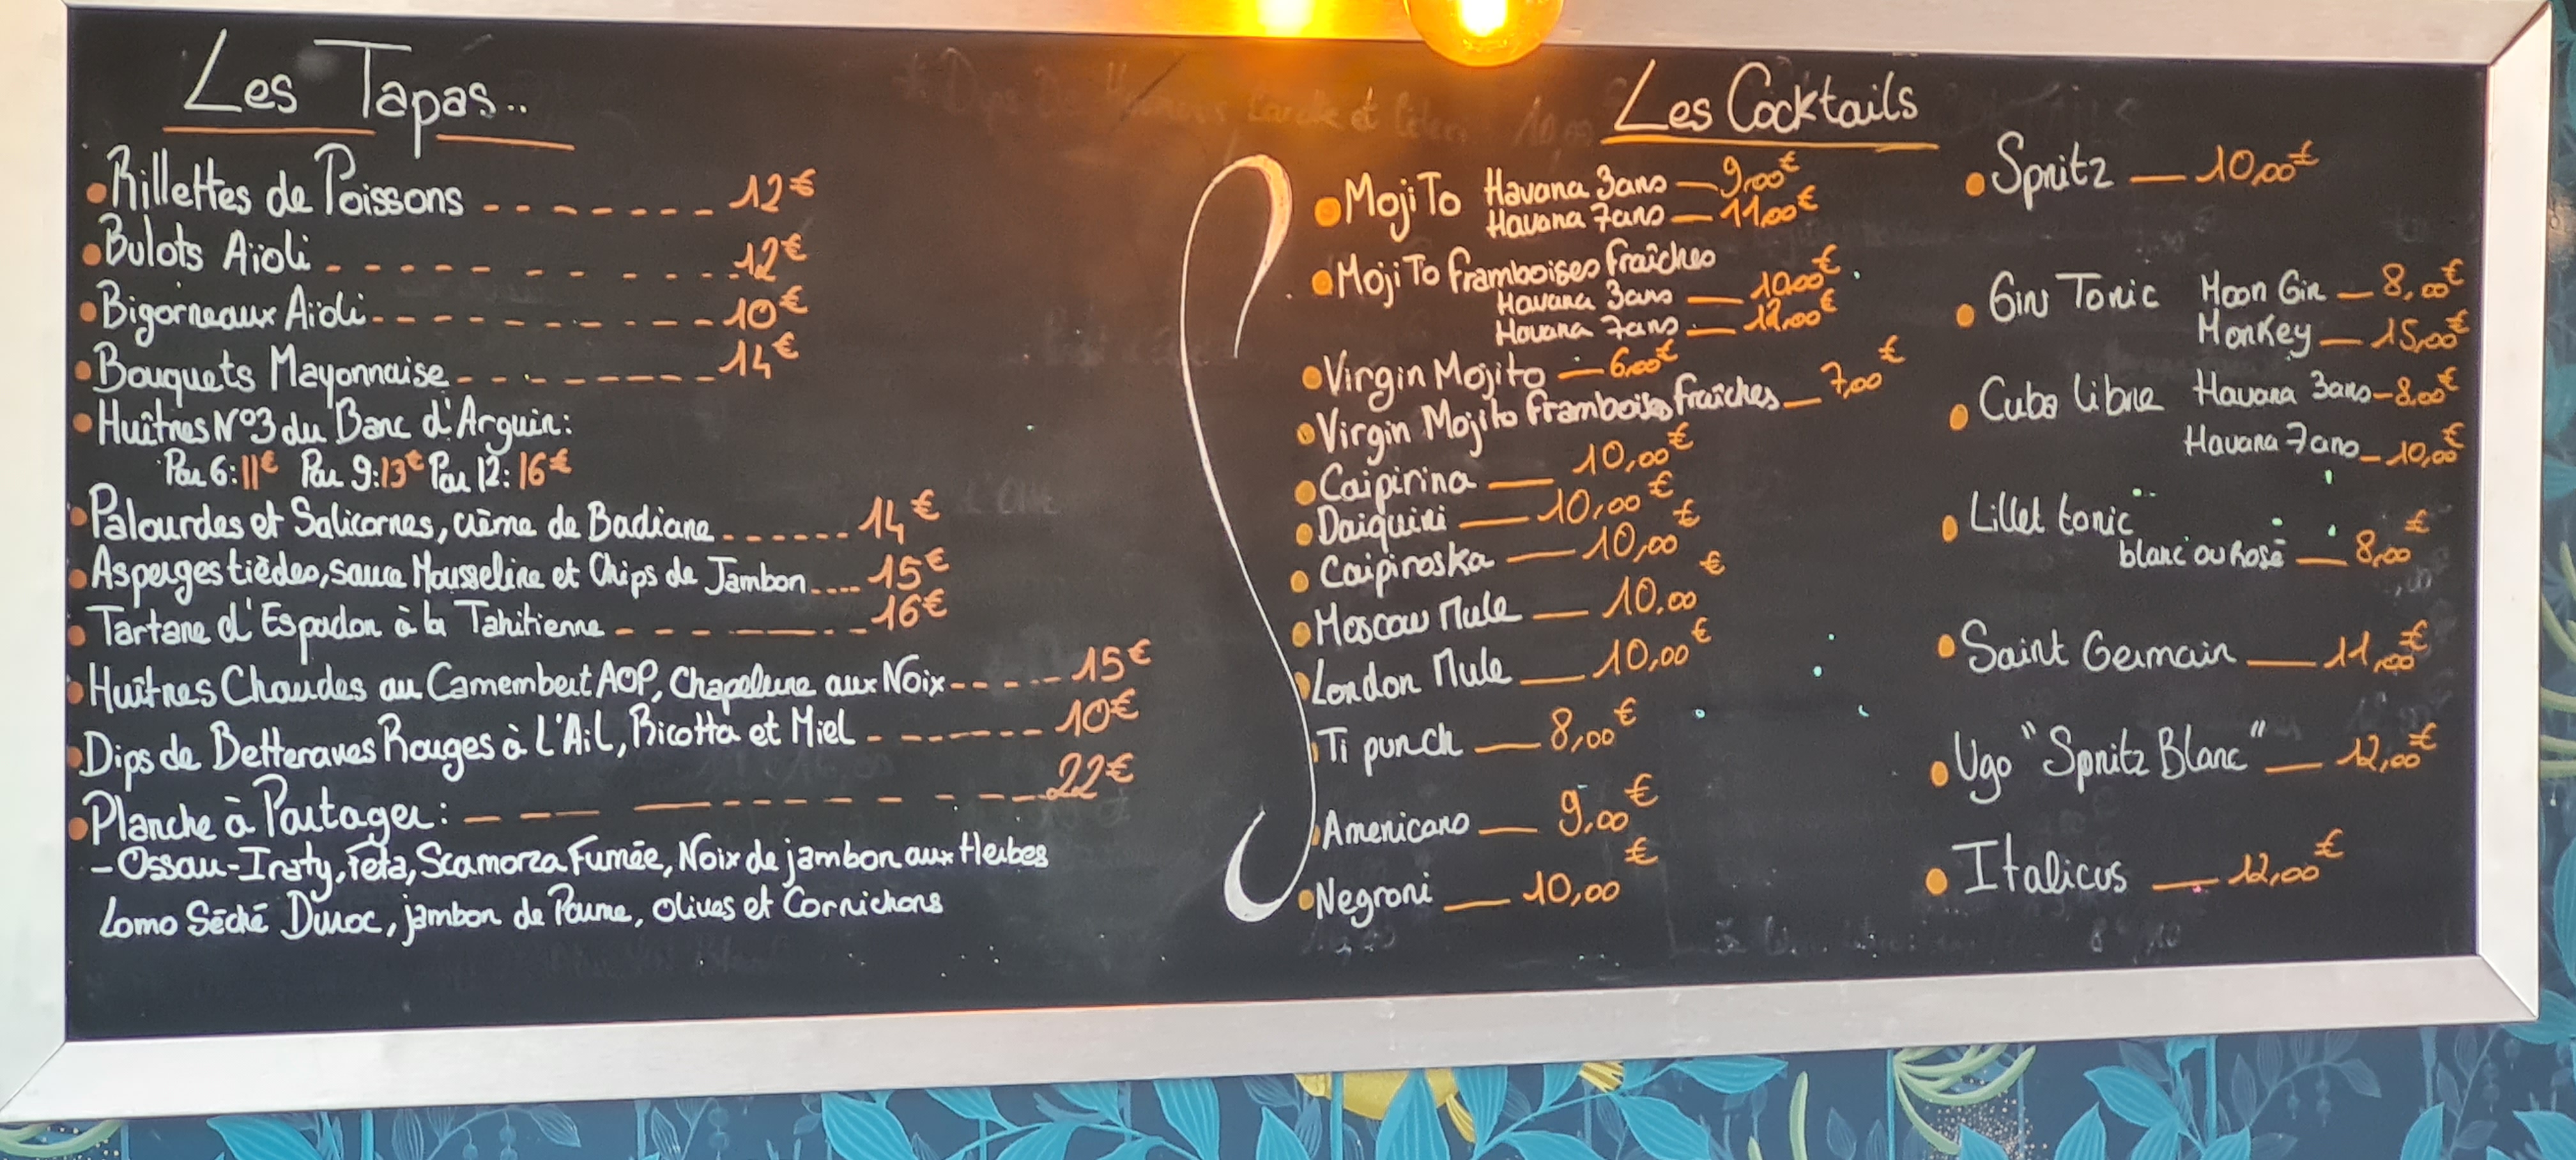 Les Tapas..
• Rillettes de Poissons - - - - - - - 12€
• Bulots Aïoli - - - - - - - - - - 12€
• Bigorneaux Aïoli - - - - - - - - - - 10€
• Bouquets Mayonnaise - - - - - - - - 14€
• Huîtres N°3 du Banc d'Arguin:
Par 6: 11€ Par 9: 13€ Par 12: 16€
• Palourdes et Salicornes, crème de Badiane ...... 14€
• Asperges tièdes, sauce Mousseline et Chips de Jambon .... 15€
• Tartare d'Espadon à la Tahitienne - - - - - - - - 16€
• Huîtres Chaudes au Camembert AOP, Chapelure aux Noix - - - - - 15€
• Dips de Betteraves Rouges à L'Ail, Ricotta et Miel - - - - - - - 10€
• Planche à Partager: - - - - - - - - - - - - 22€
- Ossau-Iraty, Fêta, Scamorza Fumée, Noix de jambon aux Herbes
Lomo Séché Duroc, jambon de Parme, olives et Cornichons
Les Cocktails
• MojiTo Havana 3ans — 9,00€
Havana 7ans — 11,00€
• MojiTo framboises fraîches
Havana 3ans — 10,00€
Havana 7ans — 12,00€
• Virgin Mojito — 6,00€
• Virgin Mojito framboises fraîches — 7,00€
• Caipirina — 10,00€
• Daiquiri — 10,00€
• Caipiroska — 10,00€
• Moscow Mule — 10.00€
• London Mule — 10,00€
• Ti punch — 8,00€
• Americano — 9,00€
• Negroni — 10,00€
• Spritz — 10,00€
• Gin Tonic Moon Gin — 8,00€
Monkey — 15,00€
• Cuba libre Havana 3ans — 8,00€
Havana 7ans — 10,00€
• Lillet tonic
blanc ou Rosé — 8,00€
• Saint Germain — 11,00€
• Ugo "Spritz Blanc" — 12,00€
• Italicus — 12,00€